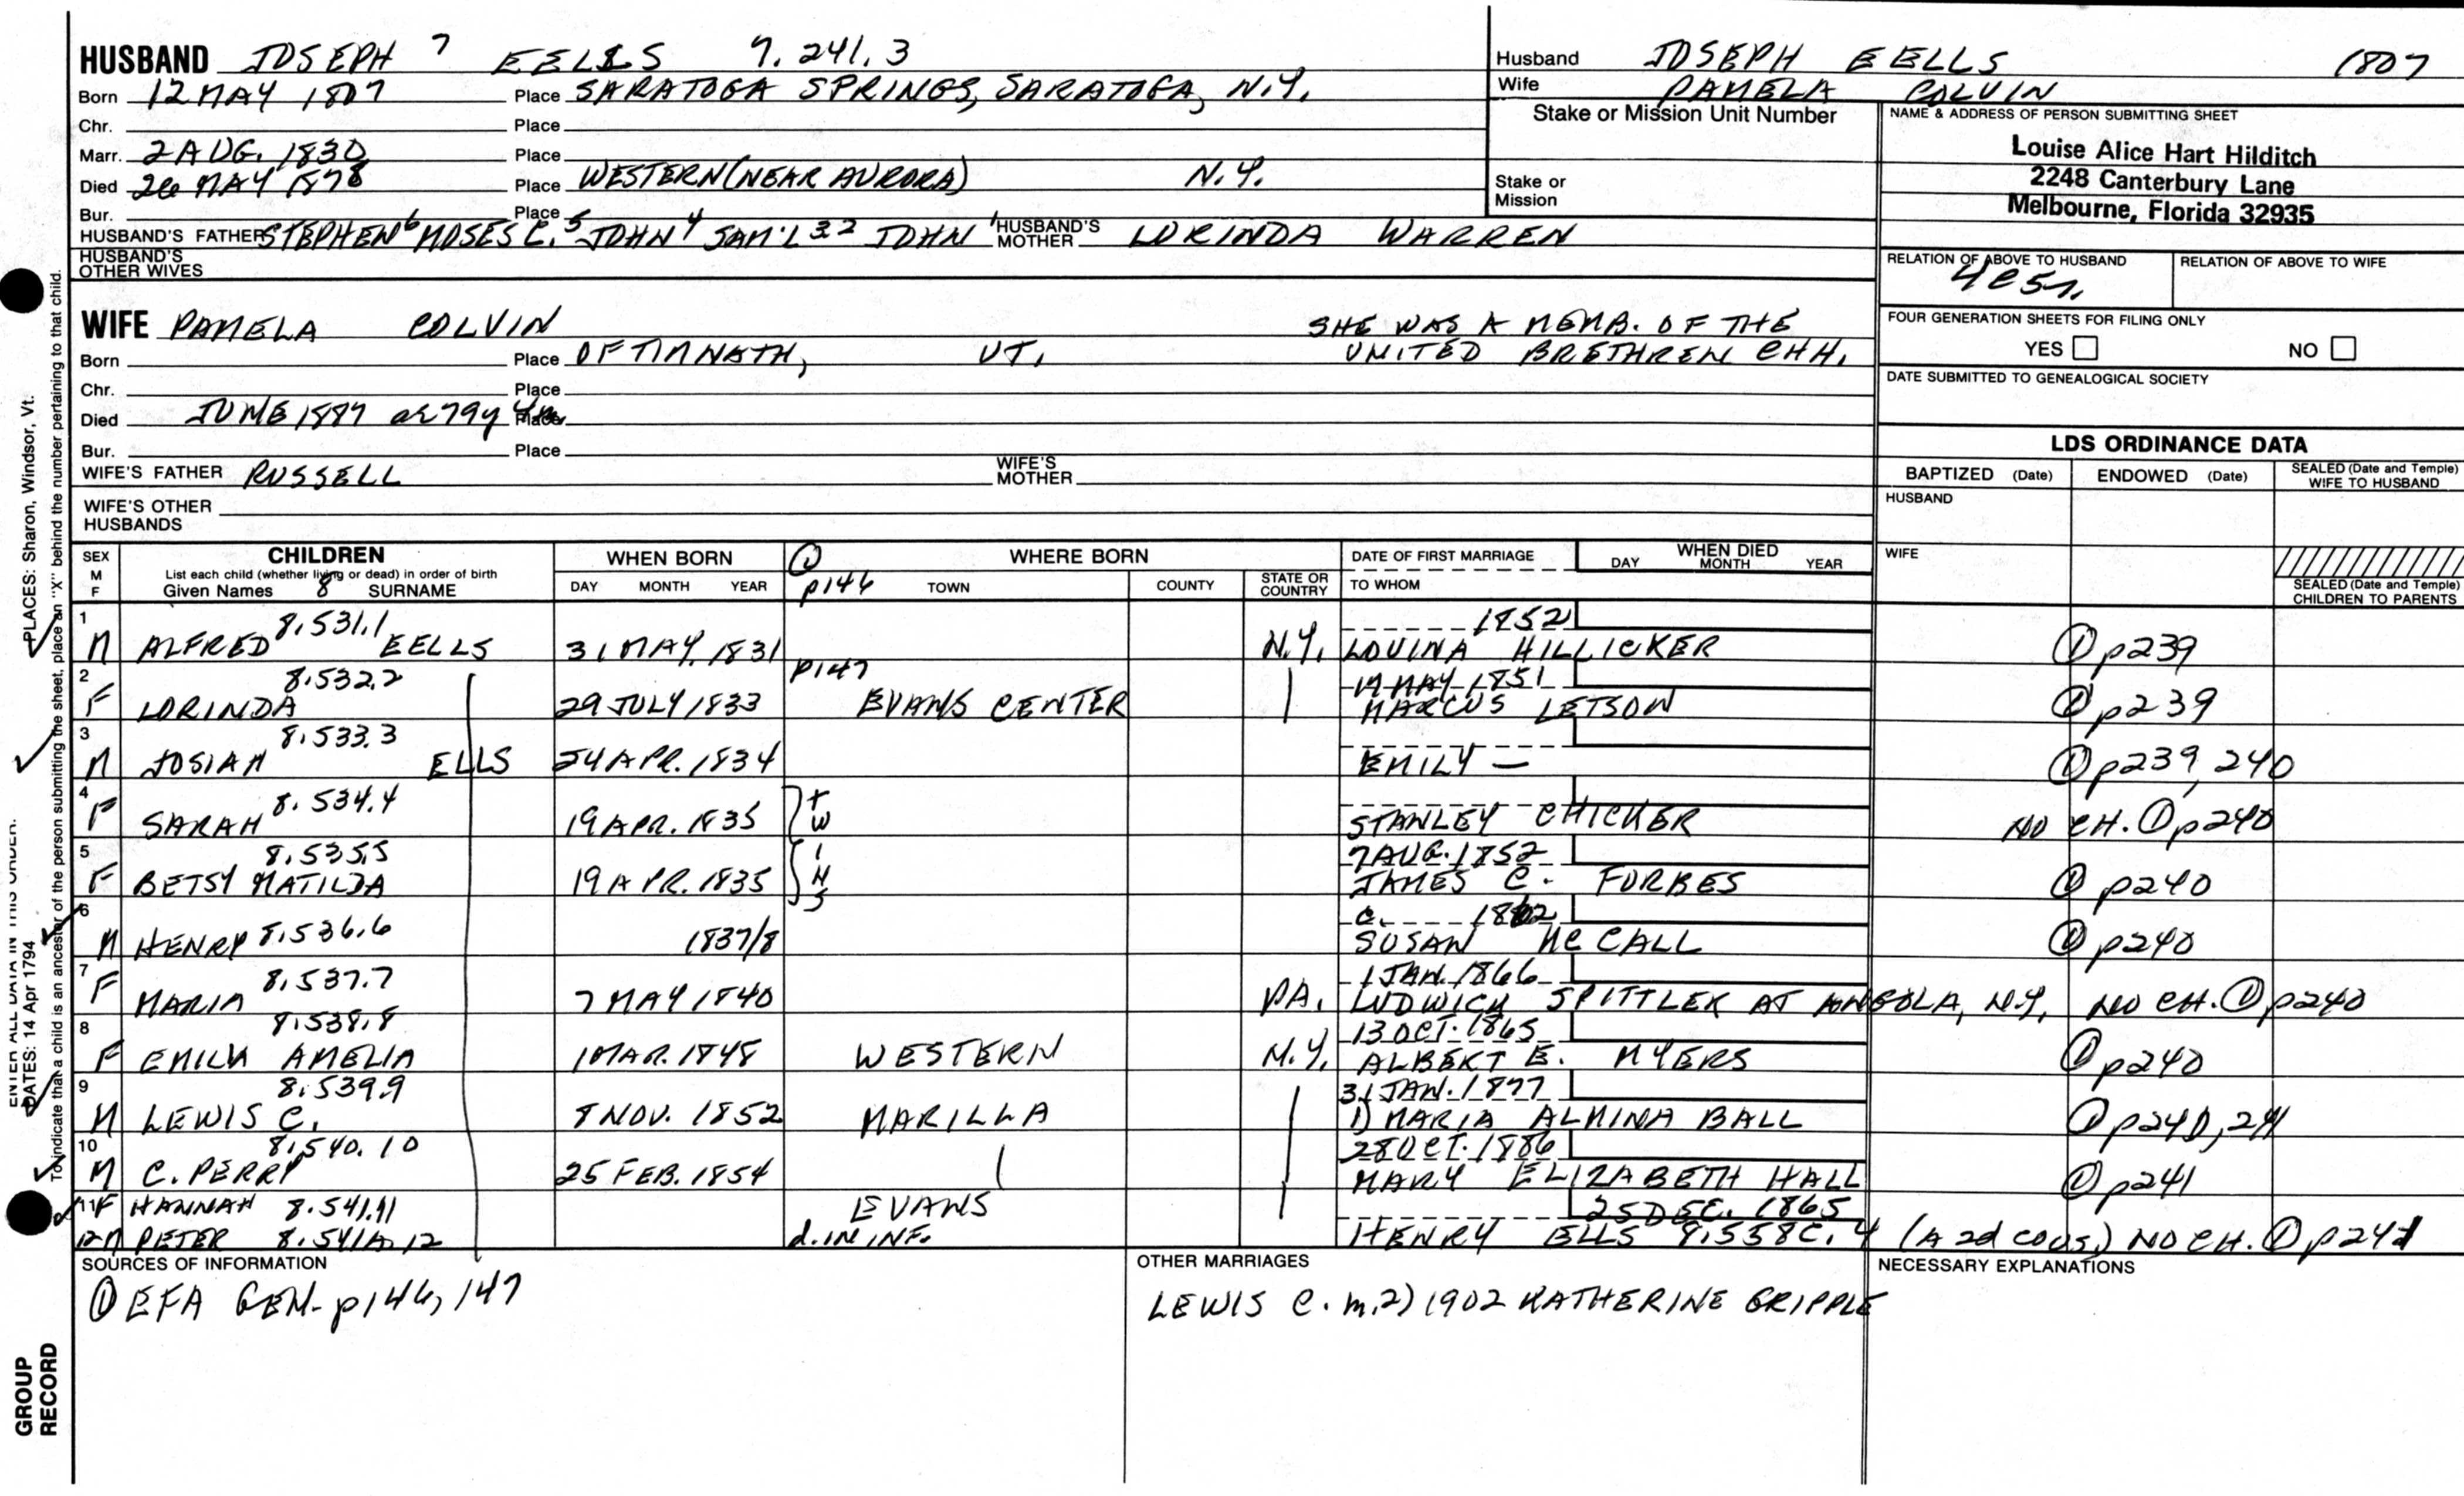 HUSBAND JOSEPH 7 EELLS 7.241.3
Born 12 MAY 1807 Place SARATOGA SPRINGS, SARATOGA, N.Y.
Chr. Place
Marr. 2 AUG. 1830 Place
Died 26 MAY 1878 Place WESTERN (NEAR AURORA) N.Y.
Bur. Place
HUSBAND'S FATHER STEPHEN 6 MOSES C. 5 JOHN 4 SAM'L 3 2 JOHN 1 HUSBAND'S MOTHER LORINDA WARREN
HUSBAND'S OTHER WIVES
Husband JOSEPH EELLS 1807
Wife PAMELA COLVIN
Stake or Mission Unit Number
Stake or Mission
NAME & ADDRESS OF PERSON SUBMITTING SHEET
Louise Alice Hart Hilditch
2248 Canterbury Lane
Melbourne, Florida 32935
RELATION OF ABOVE TO HUSBAND RELATION OF ABOVE TO WIFE
FOUR GENERATION SHEETS FOR FILING ONLY
YES NO
DATE SUBMITTED TO GENEALOGICAL SOCIETY
WIFE PAMELA COLVIN SHE WAS A MEMB. OF THE
Born Place OF TINMATH, VT. UNITED BRETHREN CHH.
Chr. Place
Died JUNE 1887 ae 79y Place
Bur. Place
WIFE'S FATHER RUSSELL WIFE'S MOTHER
WIFE'S OTHER HUSBANDS
LDS ORDINANCE DATA
BAPTIZED (Date) ENDOWED (Date) SEALED (Date and Temple) WIFE TO HUSBAND
HUSBAND
WIFE
SEALED (Date and Temple) CHILDREN TO PARENTS
SEX M F
CHILDREN
List each child (whether living or dead) in order of birth
Given Names 8 SURNAME
WHEN BORN
DAY MONTH YEAR
① p146
WHERE BORN
TOWN COUNTY STATE OR COUNTRY
DATE OF FIRST MARRIAGE
TO WHOM
WHEN DIED
DAY MONTH YEAR
1 8.531.1 1852
M ALFRED EELLS 31 MAY 1831 N.Y. LOVINA HILLICKER ① p239
2 8.532.2 p147 MAY 1851
F LORINDA 29 JULY 1833 EVANS CENTER MARCUS LETSON ① p239
3 8.533.3
M JOSIAH ELLS 24 APR. 1834 EMILY — ① p239, 240
4 8.534.4
F SARAH 19 APR. 1835 TW STANLEY CHICKER NO CH. ① p240
5 8.535.5 7 AUG. 1852
F BETSY MATILDA 19 APR. 1835 INS JAMES C. FORBES ① p240
6 8.536.6 c. 1862
M HENRY 1837/8 SUSAN McCALL ① p240
7 8.537.7 1 JAN. 1866
F MARIA 7 MAY 1840 PA. LUDWICK SPITTLEK AT ANGOLA, N.Y. NO CH. ① p240
8 8.538.8 13 OCT. 1865
F EMILY AMELIA 1 MAR. 1848 WESTERN N.Y. ALBERT E. MYERS ① p240
9 8.539.9 31 JAN. 1877
M LEWIS C. 8 NOV. 1852 MARILLA 1) MARIA ALMINA BALL ① p240, 241
10 8.540.10 28 OCT. 1886
M C. PERRY 25 FEB. 1854 MARY ELIZABETH HALL ① p241
11 F HANNAH 8.541.11 EVANS 25 DEC. 1865
12 M PETER 8.541A.12 d. IN INF. HENRY ELLS 9.558C.4 (A 2d cous.) NO CH. ① p241
SOURCES OF INFORMATION
① EFA GEN- p146, 147
OTHER MARRIAGES
LEWIS C. m. 2) 1902 KATHERINE GRIPPLE
NECESSARY EXPLANATIONS
PLACES: Sharon, Windsor, Vt.
To indicate that a child is an ancestor of the person submitting the sheet, place an "X" behind the number pertaining to that child.
ENTER ALL DATA IN THIS ORDER.
DATES: 14 Apr 1794
GROUP
RECORD